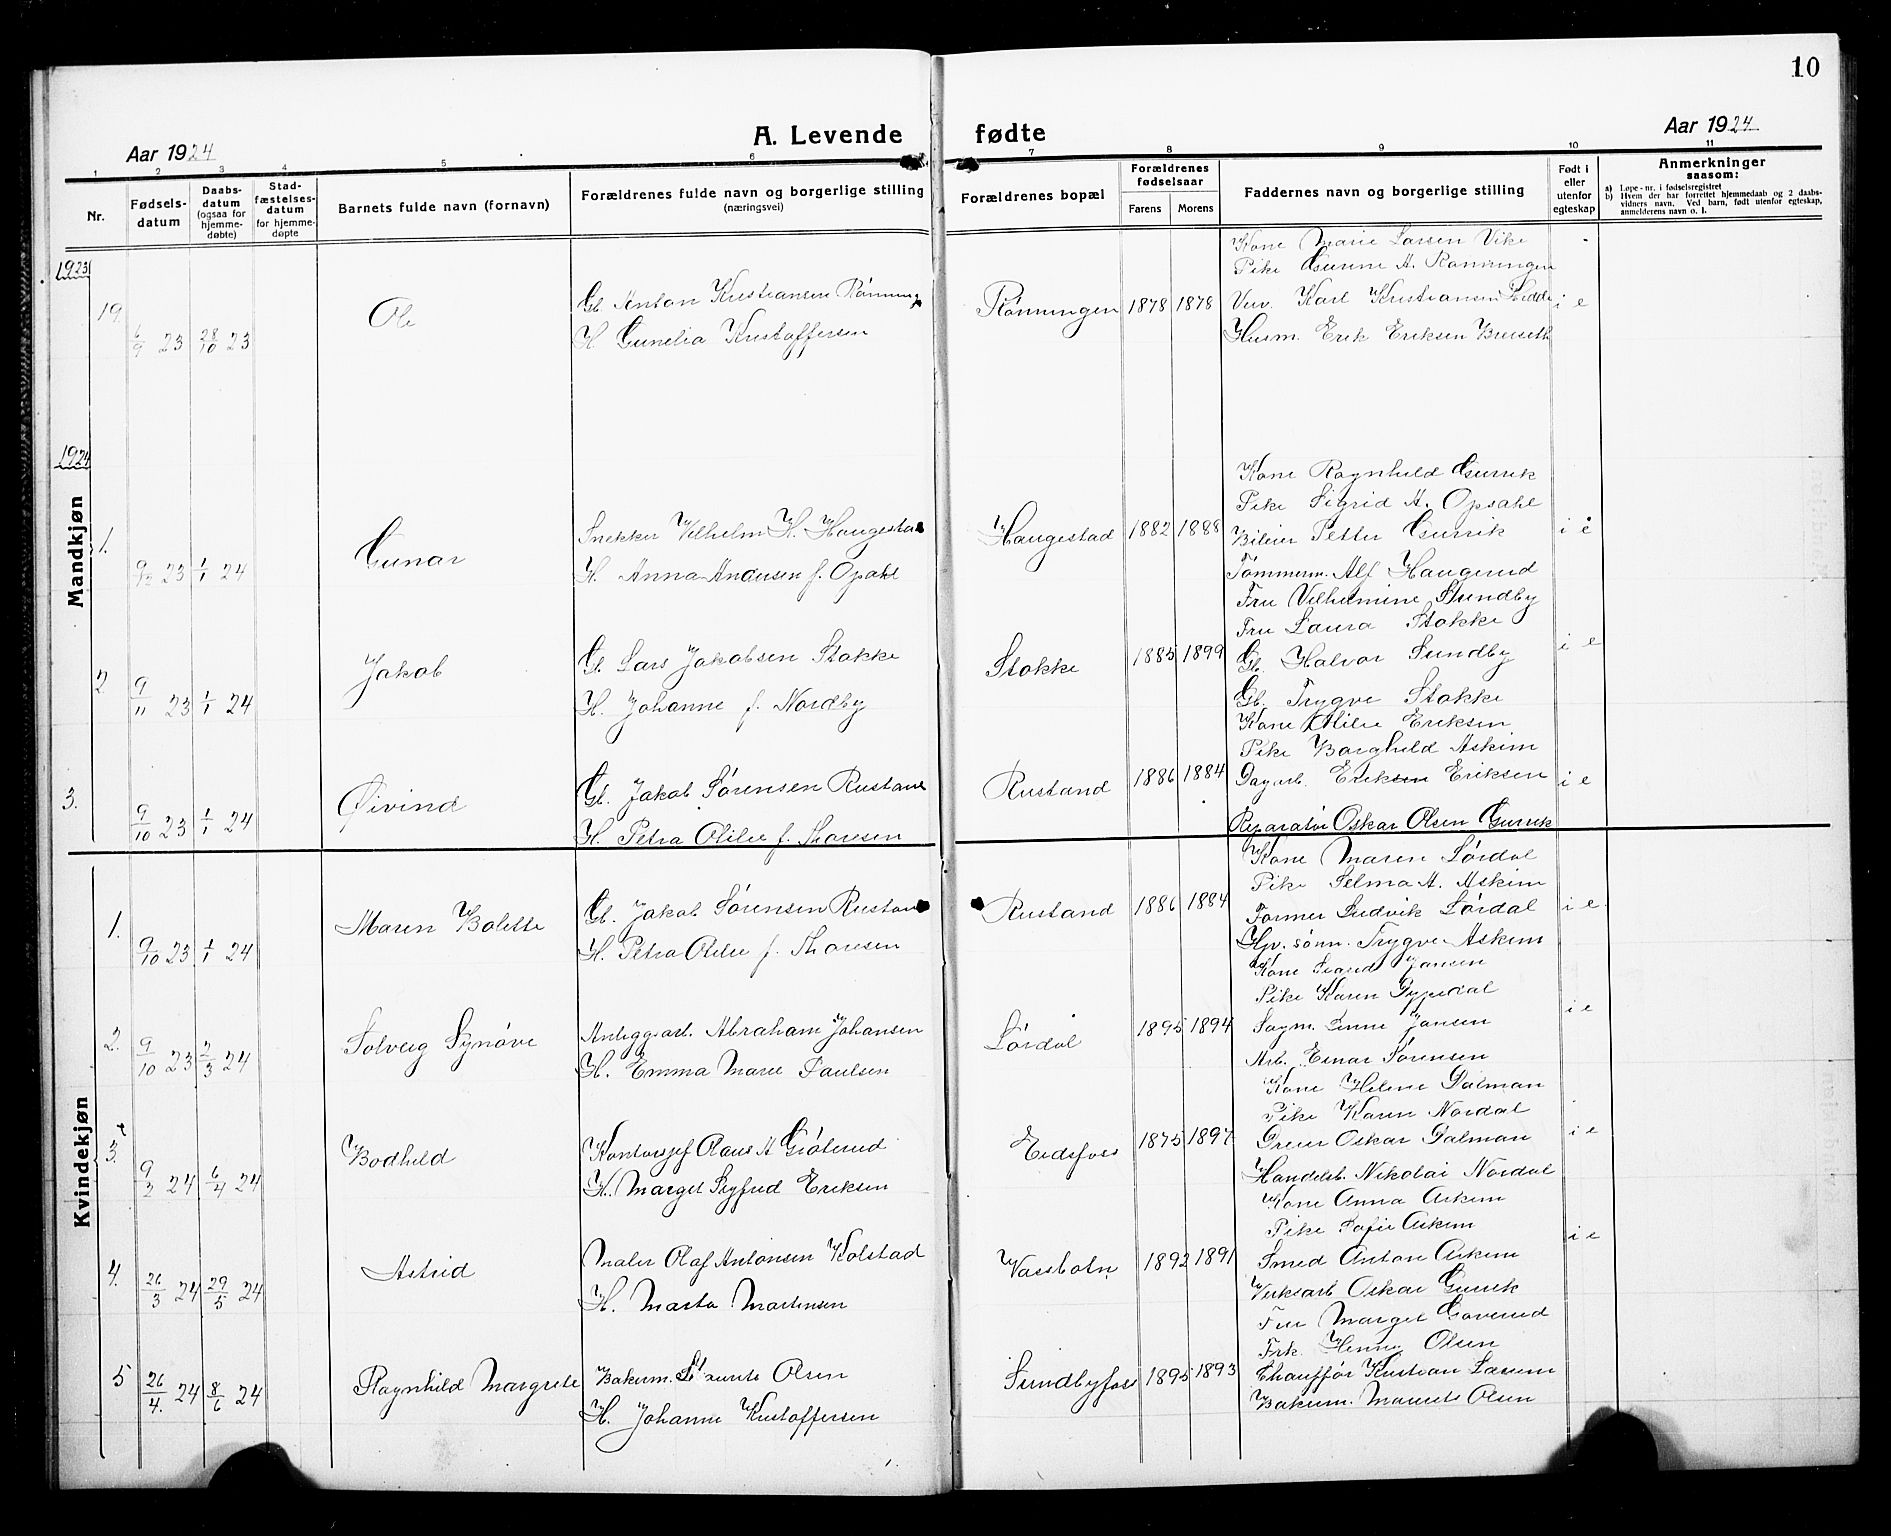 10
A. Levende fødte
Aar 1924
Aar 1924
1 2 3 4 5 6 7 8 9 10 11
Nr.
Fødsels-datum
Daabs-datum (ogsaa for hjemme-døbte)
Stad-fæstelses-datum for hjemme-døpte
Barnets fulde navn (fornavn)
Forældrenes fulde navn og borgerlige stilling (næringsvei)
Forældrenes bopæl
Forældrenes fødselsaar
Farens Morens
Faddernes navn og borgerlige stilling
Født i eller utenfor egteskap
Anmerkninger saasom:
a) Løpe-nr. i fødselsregistret
b) Hvem der har forrettet hjemmedaab og 2 daabs-vidners navn. Ved barn, født utenfor egteskap, anmelderens navn o. l.
1923
19 6/9 23 28/10 23 Ole
Gb. Anton Kristiansen Rønning
H. Gunelia Kristoffersen
Rønningen 1878 1878
Kone Marie Larsen Vike
Pike Gunne A. Rønningen
Karl Kristiansen
Husm. Erik Eriksen
i e
1924
Mandkjøn
1. 9/12 23 1/1 24 Gunar
Snekker Vilhelm H. Haugestad
H. Anna Andersen f. Opsahl
Haugestad 1882 1888
Kone Ragnhild Gurrik
Pike Sigrid A. Opsahl
Bileier Petter Gurrik
Tømmerm. Alf Haugerud
i e
2 9/11 23 1/1 24 Jakob
Gb. Lars Jakobsen Stokke
H. Johanne f. Nordby
Stokke 1885 1899
Fru Vilhelmine Sundby
Fru Laura Stokke
Gb. Halvor Sundby
Gb. Trygve Stokke
i e
3. 9/10 23 1/1 24 Øivind
Gb. Jakob Sørensen Rustand
H. Petra Otilie f. Thoresen
Rustand 1886 1884
Kone Otilie Eriksen
Pike Borghild Askim
Dagarb. Eriksen Eriksen
Reparatør Oskar Olsen Gurrik
i e
Kvindekjøn
1. 9/10 23 1/1 24 Maren Bolette
Gb. Jakob Sørensen Rustand
H. Petra Otilie f. Thoresen
Rustand 1886 1884
Kone Maren Lørdal
Pike Selma A. Askim
Former Ludvik Lørdal
Gb. sønn. Trygve Askim
i e
2. 9/10 23 2/3 24 Solveig Synøve
Anleggsarb. Abraham Johansen
H. Emma Marie Paulsen
Lørdal 1895 1894
Kone Jansen
Pike Karen
Sagm. Jansen
Arb. Einar Sørensen
i e
3. 9/2 24 6/4 24 Bodhild
Kontorsjef Claus A
H. Marget Sigfrid Eriksen
Eidsfoss 1875 1897
Kone Helene Dalman
Pike Karen Nordal
Dreier Oskar Dalman
Handelsb. Nikolai Nordal
i e
4. 26/3 24 29/5 24 Astrid
Maler Olaf Antonsen Kolstad
H. Marta Martinsen
Vassbotn 1892 1891
Kone Anna Askim
Pike Sofie Askim
Smed Anton Askim
Verksarb Oskar Gurrik
i e
5 26/4. 24 8/6 24 Ragnhild Margrete
Bakerm. Laurits Olsen
H. Johanne Kristoffersen
Sundbyfoss 1895 1893
Fru Marget
Frk. Henny Olsen
Chauffør Kristian Larsen
Bakerm. Olsen